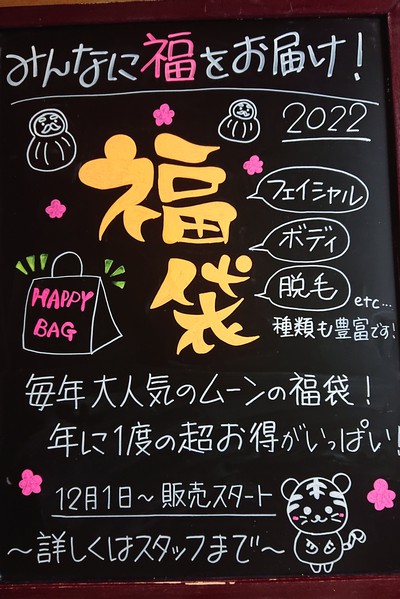 みんなに福をお届け！
2022
福袋
フェイシャル
ボディ
脱毛
etc...
種類も豊富です！
HAPPY
BAG
毎年大人気のムーンの福袋！
年に1度の超お得がいっぱい！
12月1日〜販売スタート
〜詳しくはスタッフまで〜